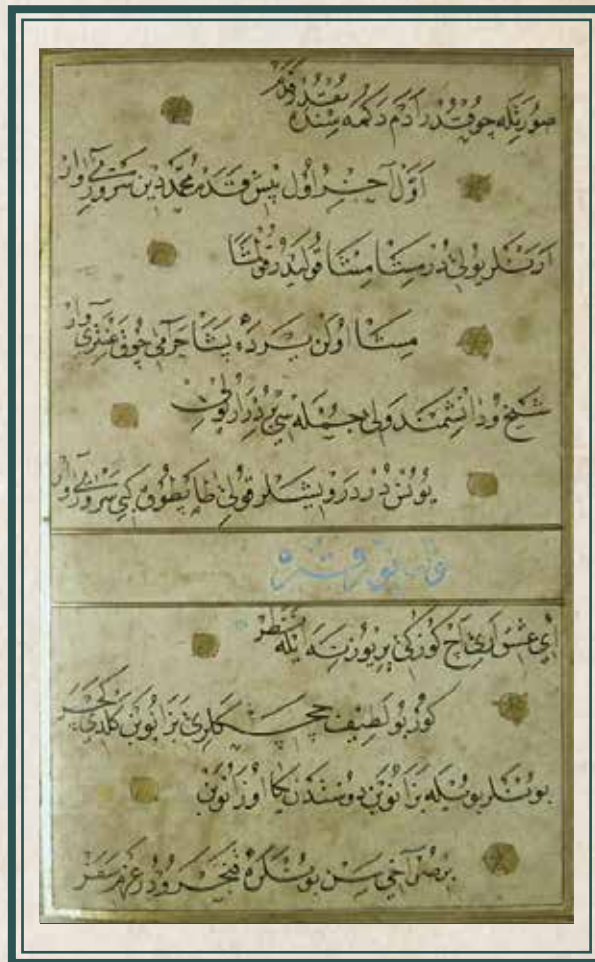 صورتله چوقدر آدم دكمه سنده يوقدر قدم
اول آخر اول پيش قدم محمد دين سرورى وار
ارنلر يولى در
اولن يرده حرامى چوق وار
شيخ و دانشمند ولى جمله سى بردر ار يولى
يونس در درويشلر قولى طاپطوق كبى سرورى وار
اى عشق ارى آچ كوزكى ير يوزينه ايله نظر
كور بو لطيف چچكلرى بزانوبن كلدى كچر
بونلر بويله بزانوبن دوستدن يكا اوزانوبن
بر صور اخى سن بونلره قنجرودر عزم سفر